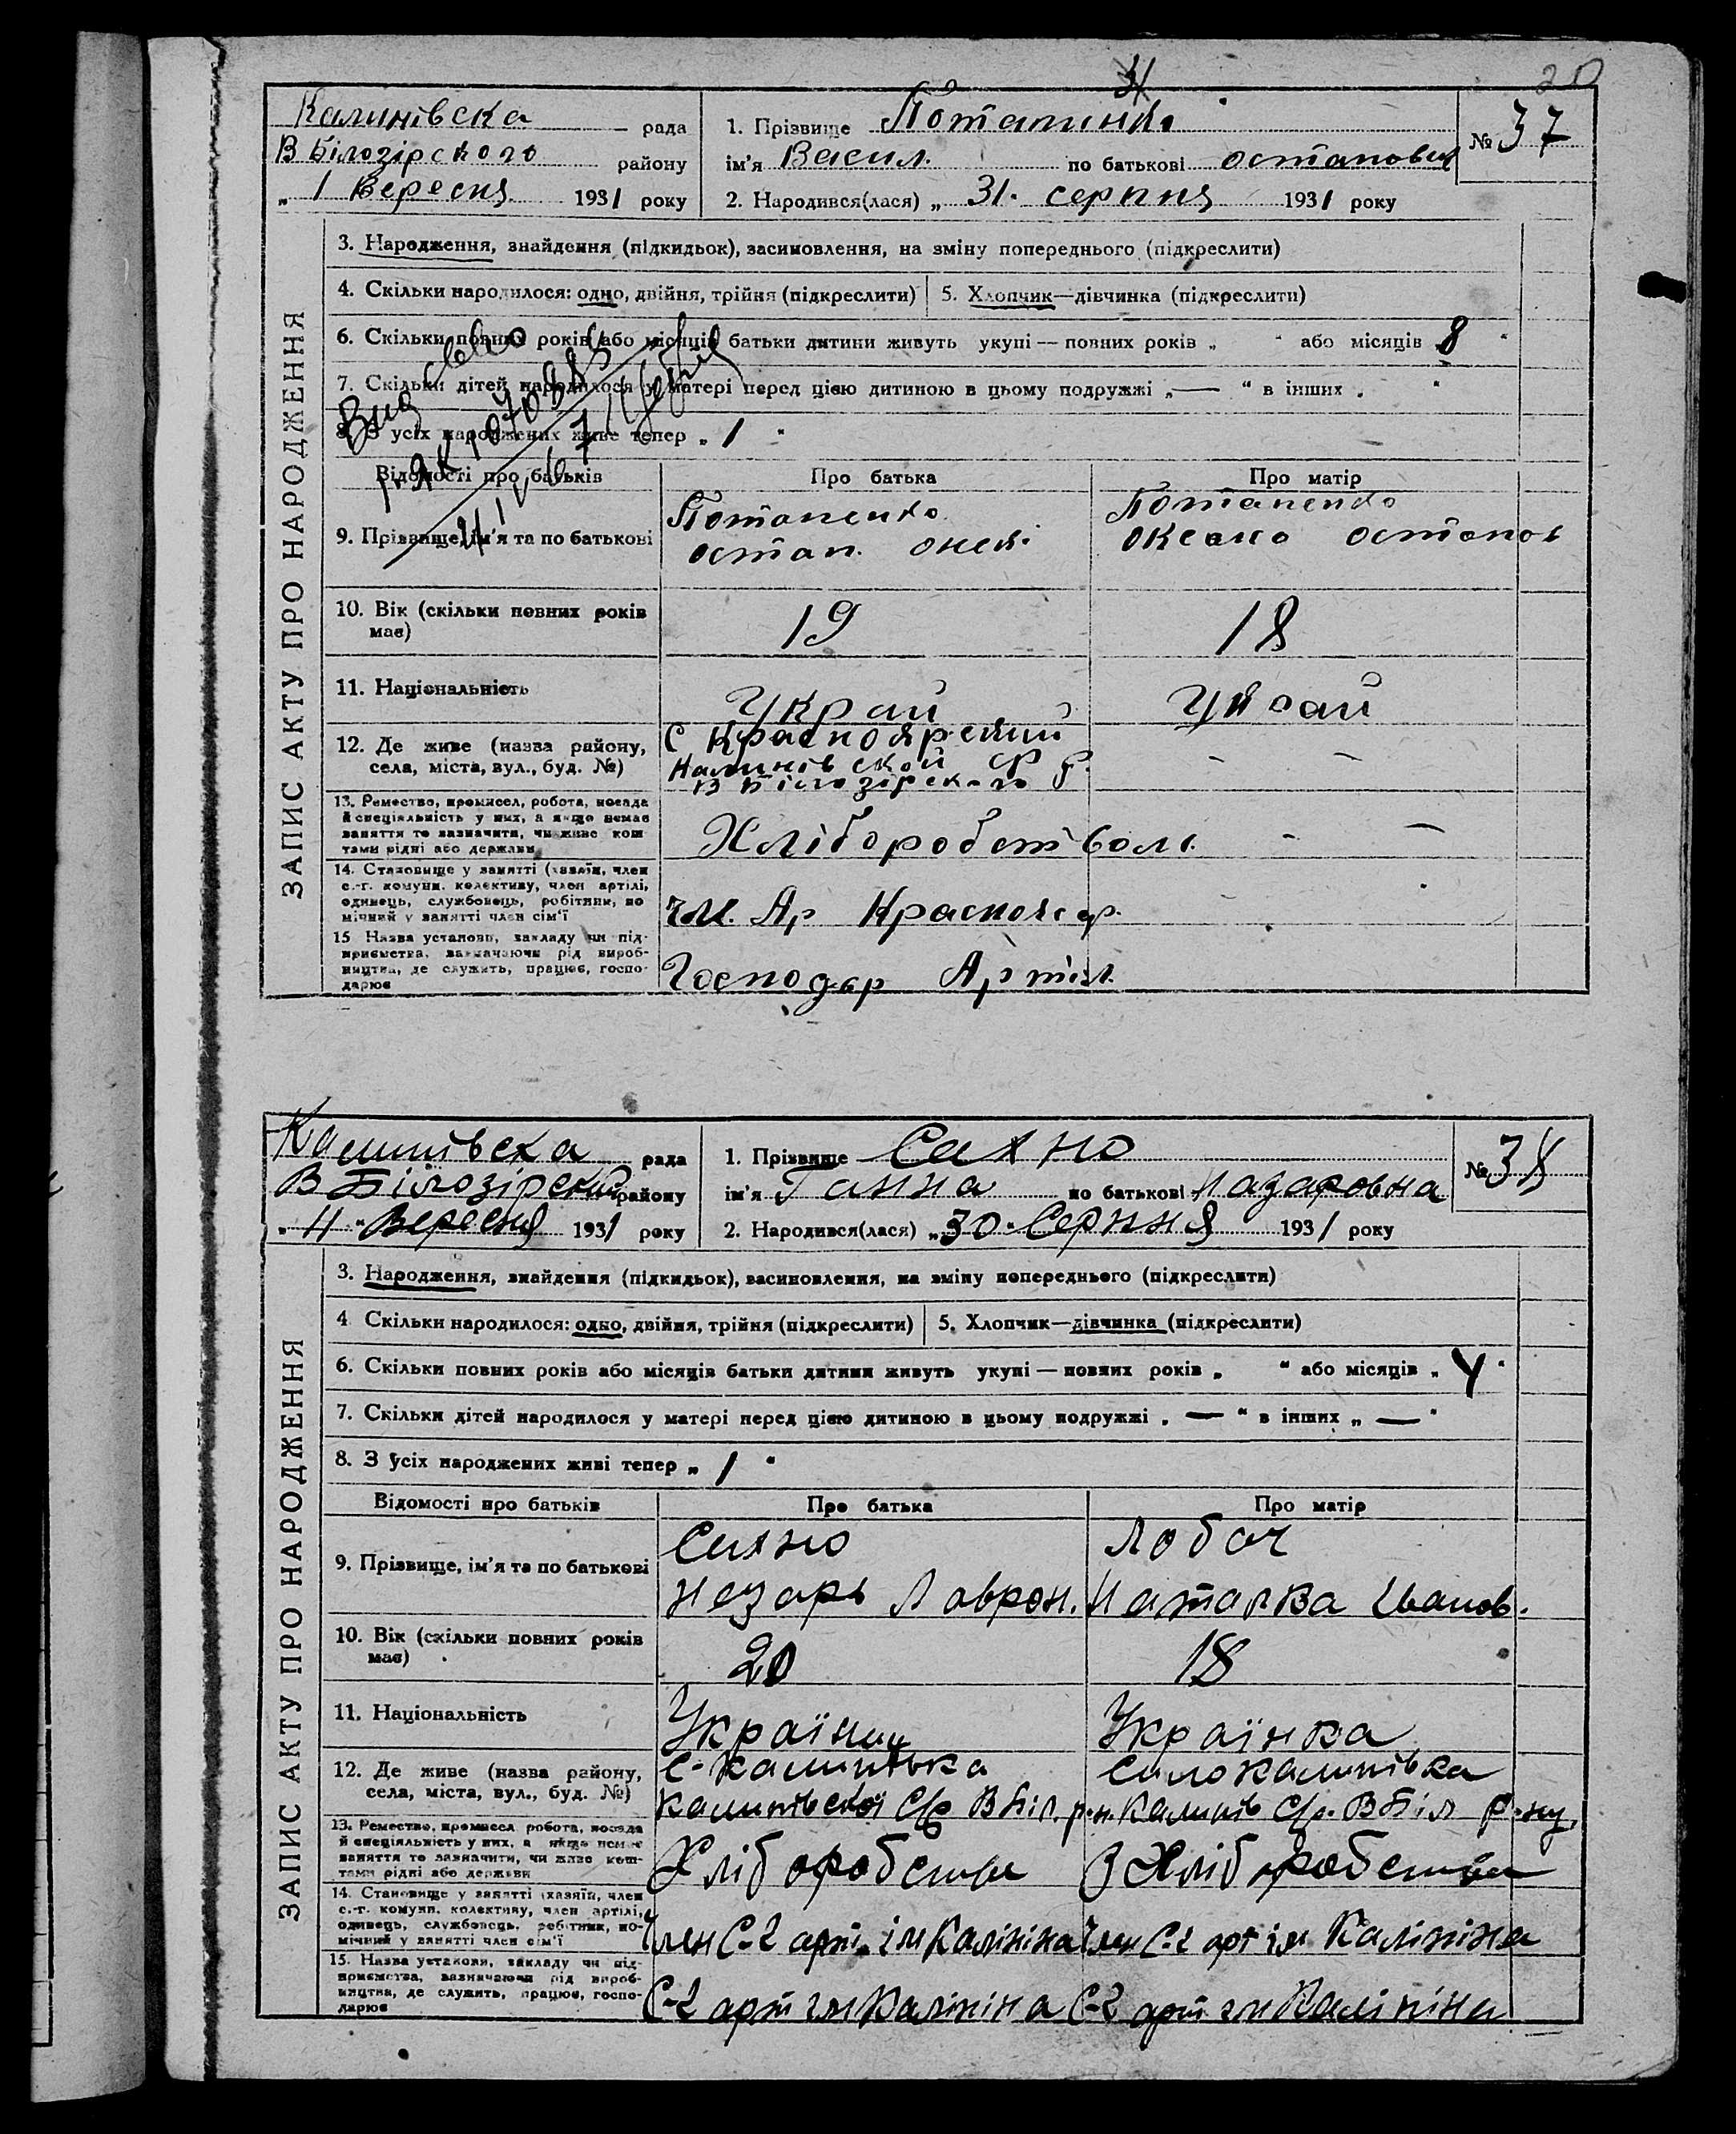 20
Калинівска рада
В Білозірского району
„ 1 Вересня 1931 року
1. Прізвище Потапинко
ім'я Васил. по батькові остапович
№ 37
2. Народився(лася) „ 31. серпня 1931 року
ЗАПИС АКТУ ПРО НАРОДЖЕННЯ
3. Народження, знайдення (підкидьок), засиновлення, на зміну попереднього (підкреслити)
4. Скільки народилося: одно, двійня, трійня (підкреслити) 5. Хлопчик—дівчинка (підкреслити)
6. Скільки повних років або місяців батьки дитини живуть укупі — повних років „ “ або місяців 8 “
7. Скільки дітей народилося у матері перед цією дитиною в цьому подружжі „ — “ в інших „ “
8. З усіх народжених живе тепер „ 1 “
Відомості про батьків Про батька Про матір
9. Прізвище, ім'я та по батькові
Потапенко
остап.
Потапенко
оксана остапов
10. Вік (скільки повних років має) 19 18
11. Національність Украй Украй
12. Де живе (назва району, села, міста, вул., буд. №)
С Красноярский
Калинівской С Р.
В Білозірского р
13. Ремество, промисел, робота, посада й спеціяльність у них, а якщо немає заняття то зазначити, чи живе коштами рідні або держави
Хліборобством.
14. Становище у занятті (хазяїн, член с.-г. комуни, колективу, член артілі, одинець, службовець, робітник, помічний у занятті член сім'ї
чл. Ар Краснояр.
15 Назва установи, закладу чи підприємства, зазначаючи рід виробництва, де служить, працює, господарює
Господар Артіл.
Калинівска рада
В Білозірский району
„ 4 “ Вересня 1931 року
1. Прізвище Сахно
ім'я Ганна по батькові Назаровна
№ 38
2. Народився(лася) „ 30 “ Серпня 1931 року
ЗАПИС АКТУ ПРО НАРОДЖЕННЯ
3. Народження, знайдення (підкидьок), засиновлення, на зміну попереднього (підкреслити)
4 Скільки народилося: одно, двійня, трійня (підкреслити) 5. Хлопчик—дівчинка (підкреслити)
6. Скільки повних років або місяців батьки дитини живуть укупі — повних років „ “ або місяців „ “
7. Скільки дітей народилося у матері перед цією дитиною в цьому подружжі „ — “ в інших „ — “
8. З усіх народжених живі тепер „ 1 “
Відомості про батьків Про батька Про матір
9. Прізвище, ім'я та по батькові
Сахно
Назарь Лаврон.
Лобач
Наталка Иванов.
10. Вік (скільки повних років має) 20 18
11. Національність Українец Українка
12. Де живе (назва району, села, міста, вул., буд. №)
С. Калинівка
Калинівскої С/р В Біл. р-н.
Село Калинівка
Калинів С/р. В Біл р-ну.
13. Ремество, промисел робота, посада й спеціяльність у них, а якщо немає заняття то зазначити, чи живе коштами рідні або держави
Хліборобства З Хліборобства
14. Становище у занятті (хазяїн, член с.-г. комуни, колективу, член артілі, одинець, службовець, робітник, помічний у занятті член сім'ї
Член С-г арт. ім Калініна Член С-г арт ім Калініна
15. Назва установи, закладу чи підприємства, зазначаючи рід виробництва, де служить, працює, господарює
С-г арт ім Калініна С-г арт ім Калініна